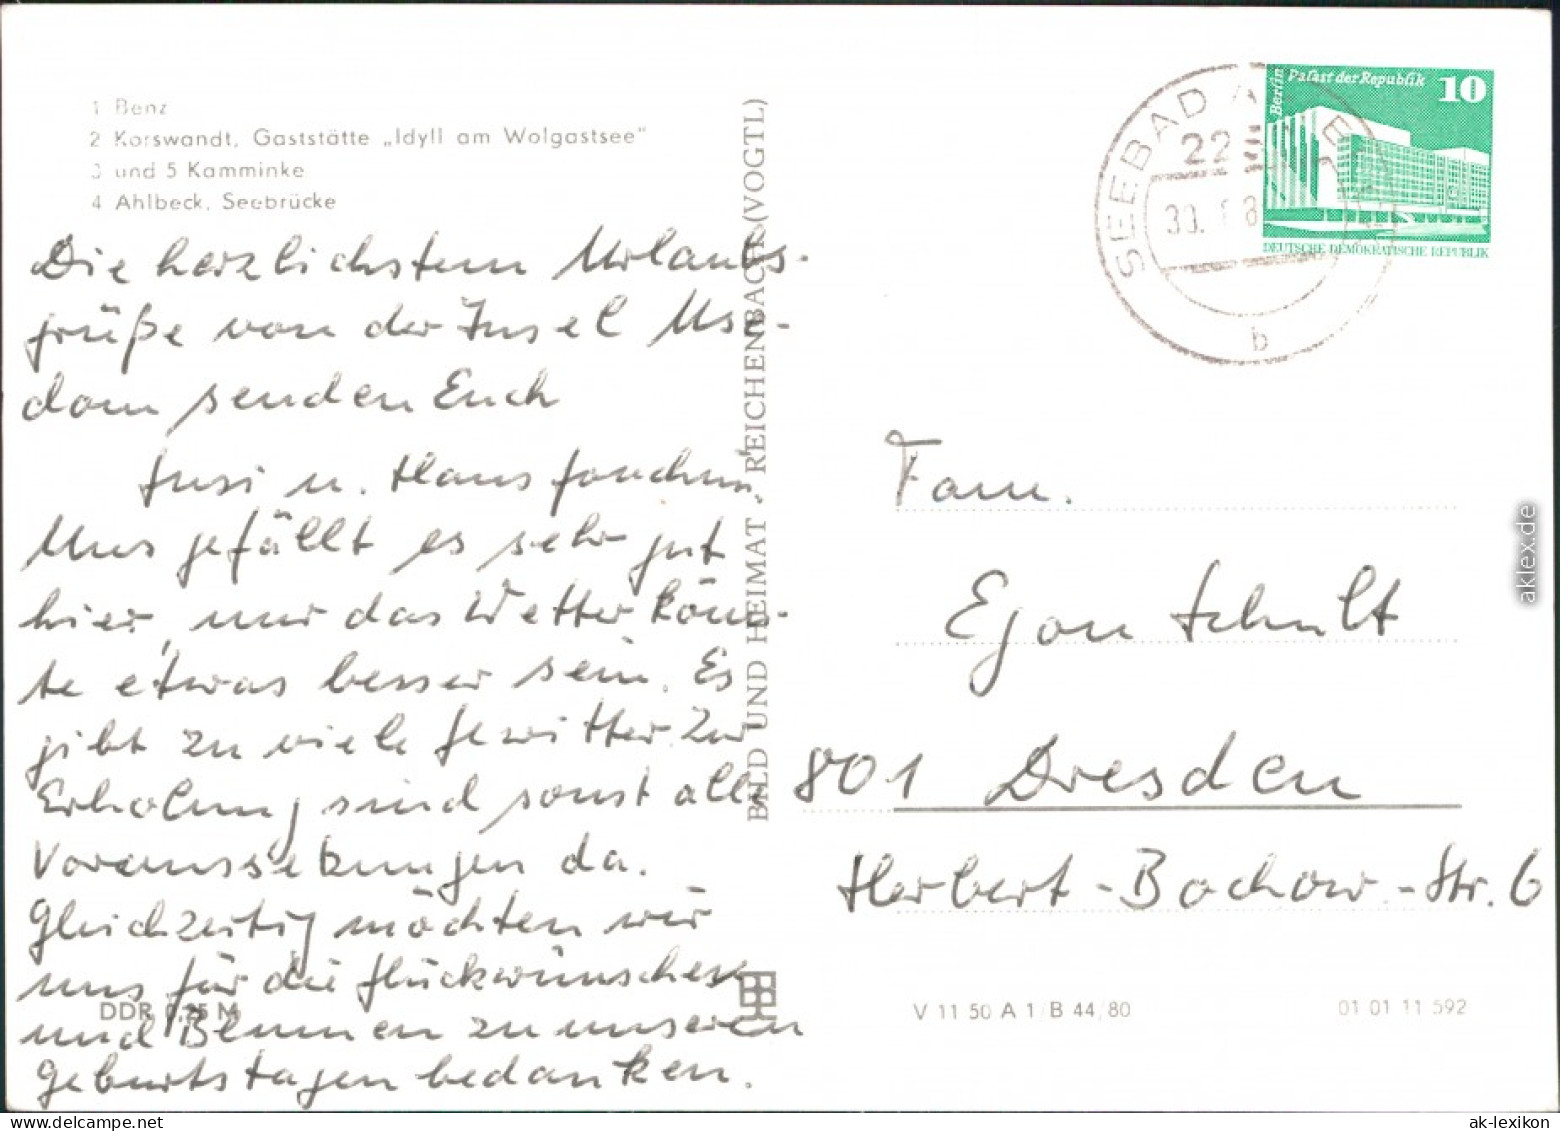 1 Benz
2 Korswandt, Gaststätte „Idyll am Wolgastsee"
3 und 5 Kamminke
4 Ahlbeck, Seebrücke
Die herzlichsten Urlaubs-
grüße von der Insel Use-
dom senden Euch
Susi u. Hans Joachim.
Uns gefällt es sehr gut
hier, nur das Wetter könn-
te etwas besser sein. Es
gibt zu viele Gewitter. Zur
Erholung sind sonst alle
Voraussetzungen da.
Gleichzeitig möchten wir
uns für die Glückwünsche
und Blumen zu unseren
Geburtstagen bedanken.
DDR 0,25 M
BILD UND HEIMAT REICHENBACH (VOGTL)
SEEBAD
22
30.
b
Berlin
Palast der Republik
10
DEUTSCHE DEMOKRATISCHE REPUBLIK
Fam.
Egon Schult
801 Dresden
Herbert-Bochow-Str. 6
V 11 50 A 1/B 44/80
01 01 11 592
aklex.de
ak-lexikon